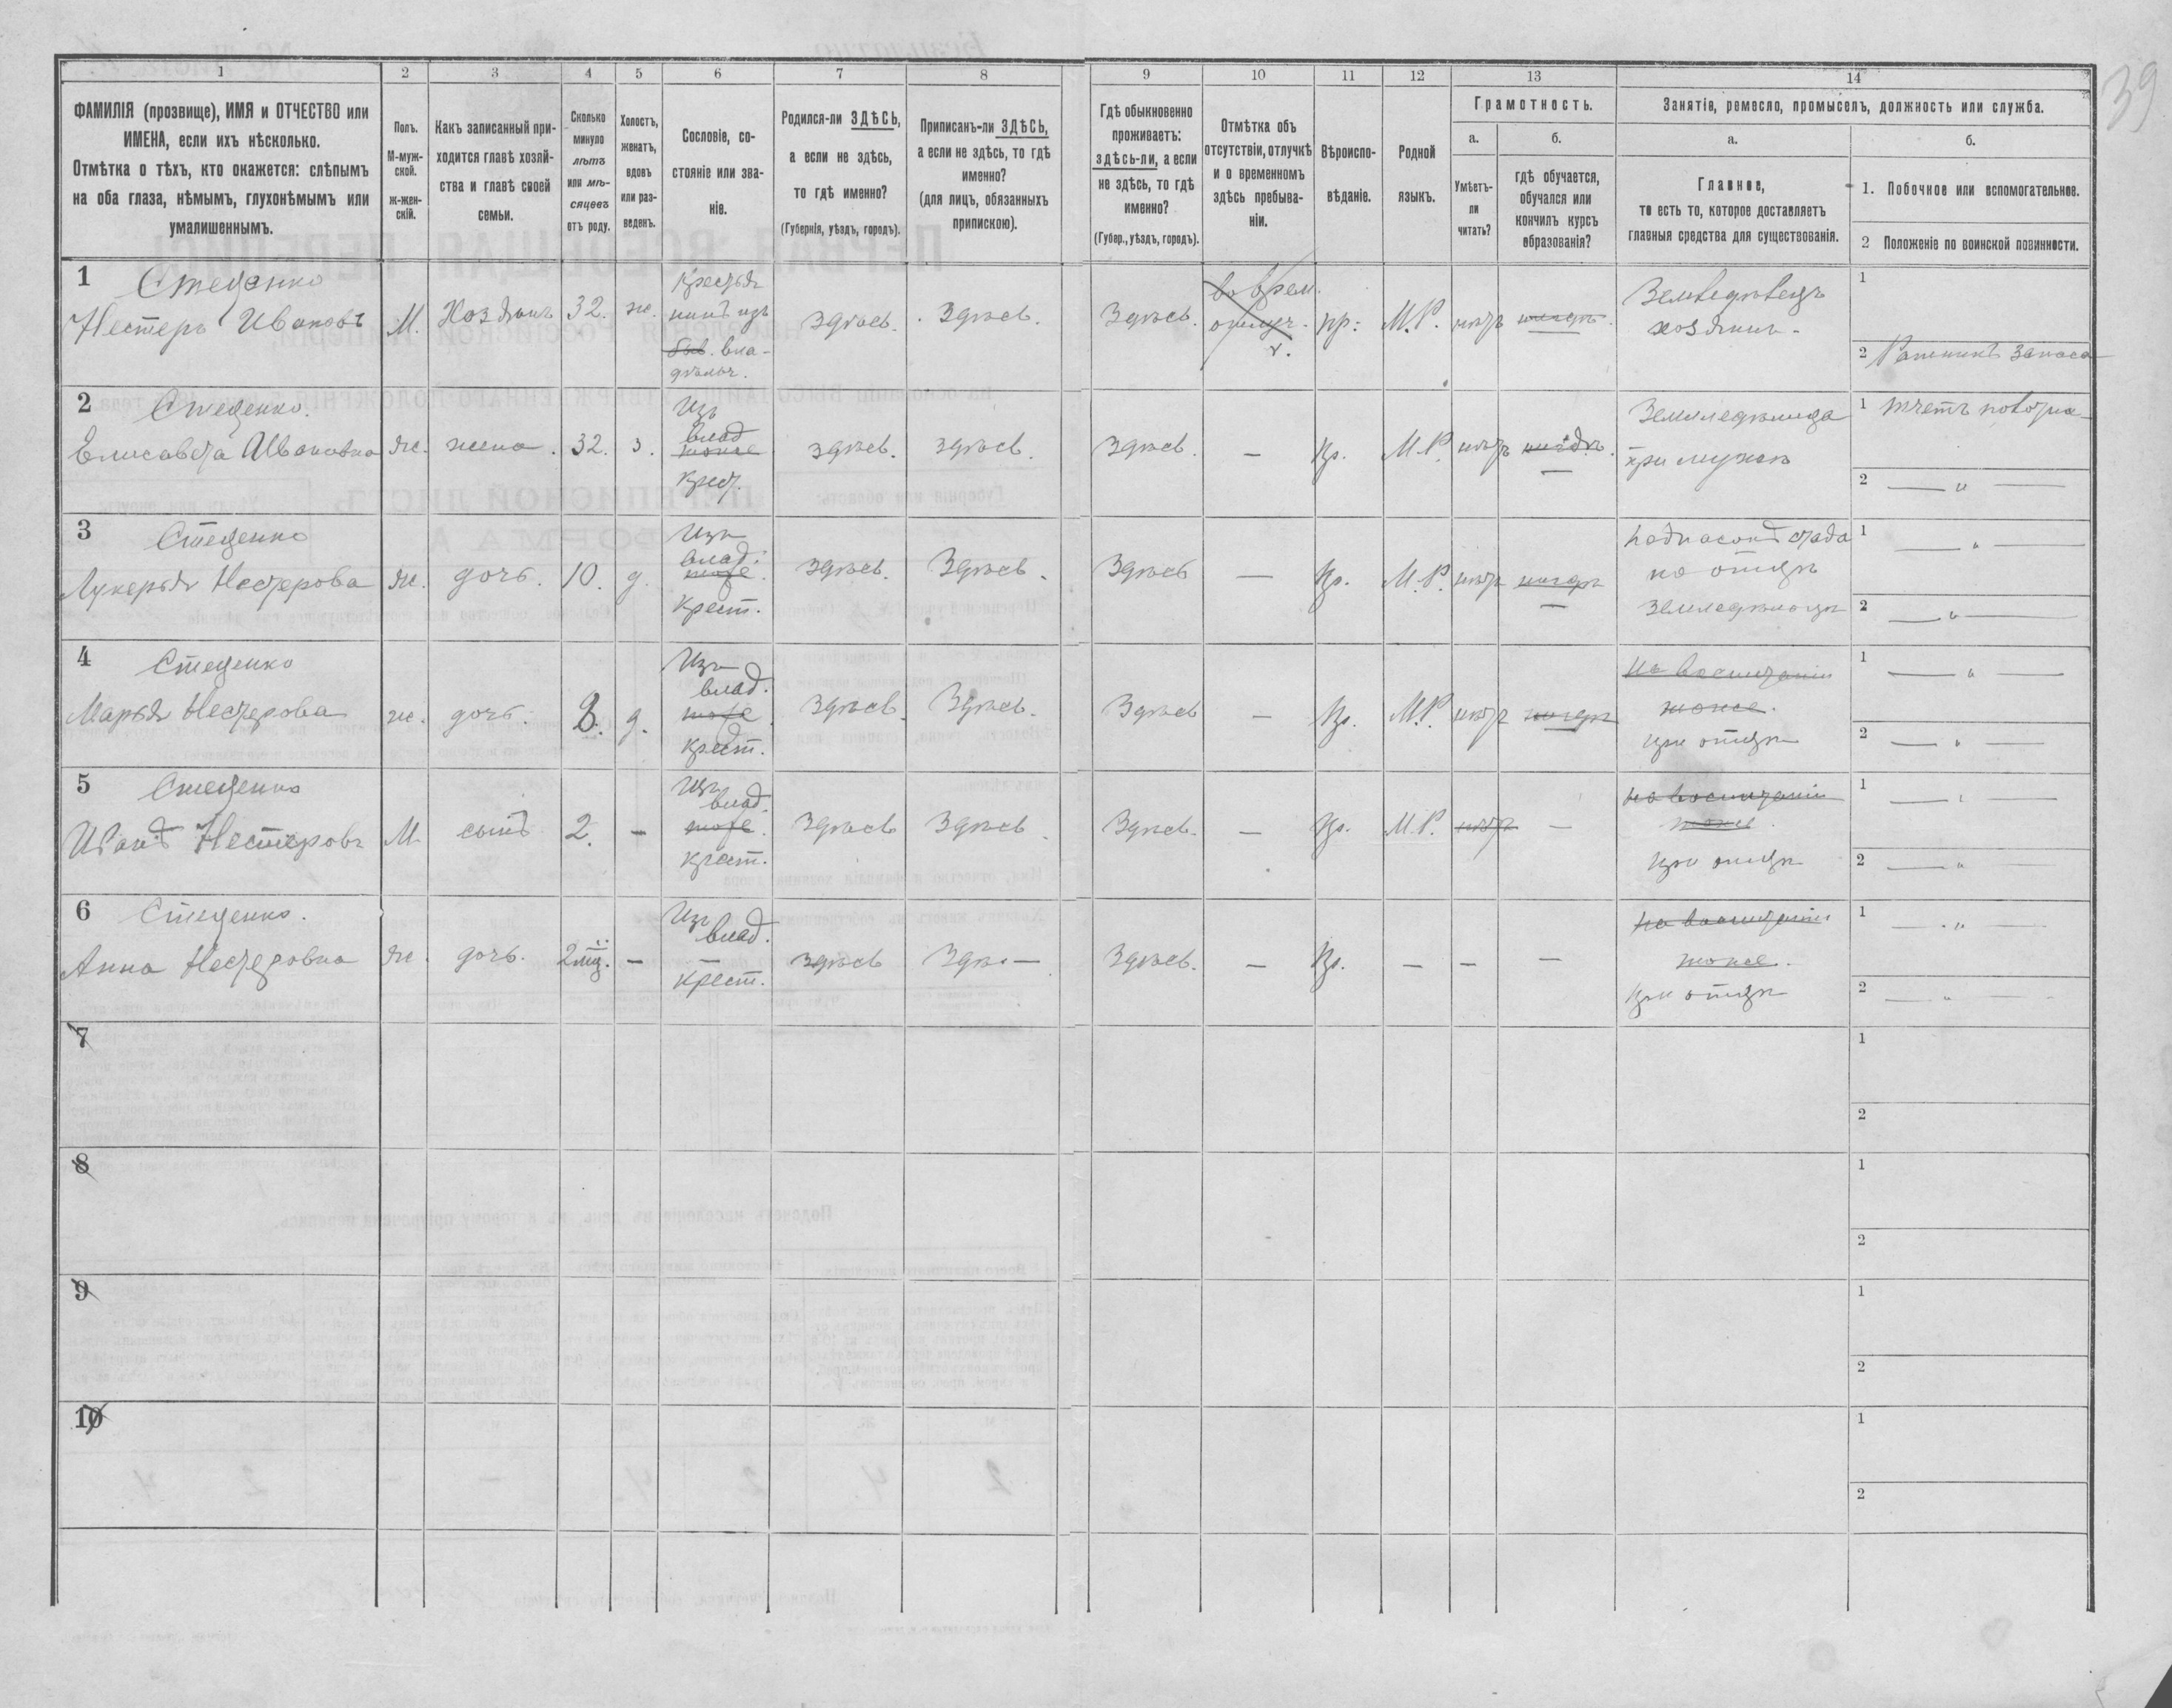 39
1
2
3
4
5
6
7
8
9
10
11
12
13
14
ФАМИЛІЯ (прозвище), ИМЯ и ОТЧЕСТВО или
ИМЕНА, если ихъ нѣсколько.
Отмѣтка о тѣхъ, кто окажется: слѣпымъ
на оба глаза, нѣмымъ, глухонѣмымъ или
умалишеннымъ.
Полъ.
М-муж-
ской.
ж-жен-
скій.
Какъ записанный при-
ходится главѣ хозяй-
ства и главѣ своей
семьи.
Сколько
минуло
лѣтъ
или мѣ-
сяцевъ
отъ роду.
Холостъ,
женатъ,
вдовъ
или раз-
веденъ.
Сословіе, со-
стояніе или зва-
ніе.
Родился-ли ЗДѢСЬ,
а если не здѣсь,
то гдѣ именно?
(Губернія, уѣздъ, городъ).
Приписанъ-ли ЗДѢСЬ,
а если не здѣсь, то гдѣ
именно?
(для лицъ, обязанныхъ
припискою).
Гдѣ обыкновенно
проживаетъ:
здѣсь-ли, а если
не здѣсь, то гдѣ
именно?
(Губер., уѣздъ, городъ).
Отмѣтка объ
отсутствіи, отлучкѣ
и о временномъ
здѣсь пребыва-
ніи.
Вѣроиспо-
вѣданіе.
Родной
языкъ.
Грамотность.
а.
Умѣетъ-
ли
читать?
б.
гдѣ обучается,
обучался или
кончилъ курсъ
образованія?
Занятіе, ремесло, промыселъ, должность или служба.
а.
Главное,
то есть то, которое доставляетъ
главныя средства для существованія.
б.
1. Побочное или вспомогательное.
2 Положеніе по воинской повинности.
1 Стеценко
Нестеръ Ивановъ
М.
Хозяинъ
32.
ж.
Крестья
нинъ изъ
быв. вла-
дѣльч.
Здѣсь.
Здѣсь.
Здѣсь.
во врем.
отлуч.
пр:
М.Р.
нѣтъ
нигдѣ.
хозяинъ.
1
2 Ратникъ запаса
2 Стеценко.
Елисавета Ивановна
ж.
жена.
32.
з.
Изъ
влад
тоже
Крест.
здѣсь.
здѣсь.
Здѣсь.
—
Пр.
М.Р.
нѣтъ
нигдѣ.
при мужѣ
1
2 — " —
3 Стеценко
Лукерья Нестерова
ж.
дочь.
10.
д.
Изъ
влад.
тоже
крест.
Здѣсь.
Здѣсь.
Здѣсь
—
Пр.
М.Р.
нѣтъ
нигдѣ
—
1 — " —
2 — " —
4 Стеценко
Марья Нестерова
ж.
дочь.
8.
д.
Изъ
влад.
тоже
крест.
Здѣсь.
Здѣсь.
Здѣсь
—
Пр.
М.Р.
нѣтъ
нигдѣ
На воспитаніи
тоже.
при отцѣ
1 — " —
2 — " —
5 Стеценко
Иванъ Нестеровъ
М.
сынъ
2.
—
Изъ
влад.
тоже
крест.
Здѣсь
Здѣсь.
Здѣсь.
—
Пр.
М.Р.
нѣтъ
—
на воспитаніи
тоже.
при отцѣ
1 — " —
2 — " —
6 Стеценко.
Анна Нестеровна
ж.
дочь.
2 мц.
—
Изъ
влад.
—
Крест.
здѣсь
Здѣ.—
Здѣсь.
—
Пр.
—
—
—
на воспитаніи
тоже.
при отцѣ
1 — " —
2 — " —
7
1
2
8
1
2
9
1
2
10
1
2